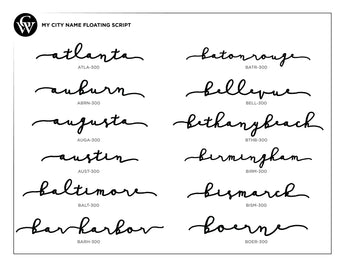 CW
MY CITY NAME FLOATING SCRIPT
atlanta
ATLA-300
auburn
ABRN-300
augusta
AUGA-300
austin
AUST-300
baltimore
BALT-300
bar harbor
BARH-300
batonrouge
BATR-300
bellevue
BELL-300
bethanybeach
BTHB-300
birmingham
BIRM-300
bismarck
BISM-300
boerne
BOER-300